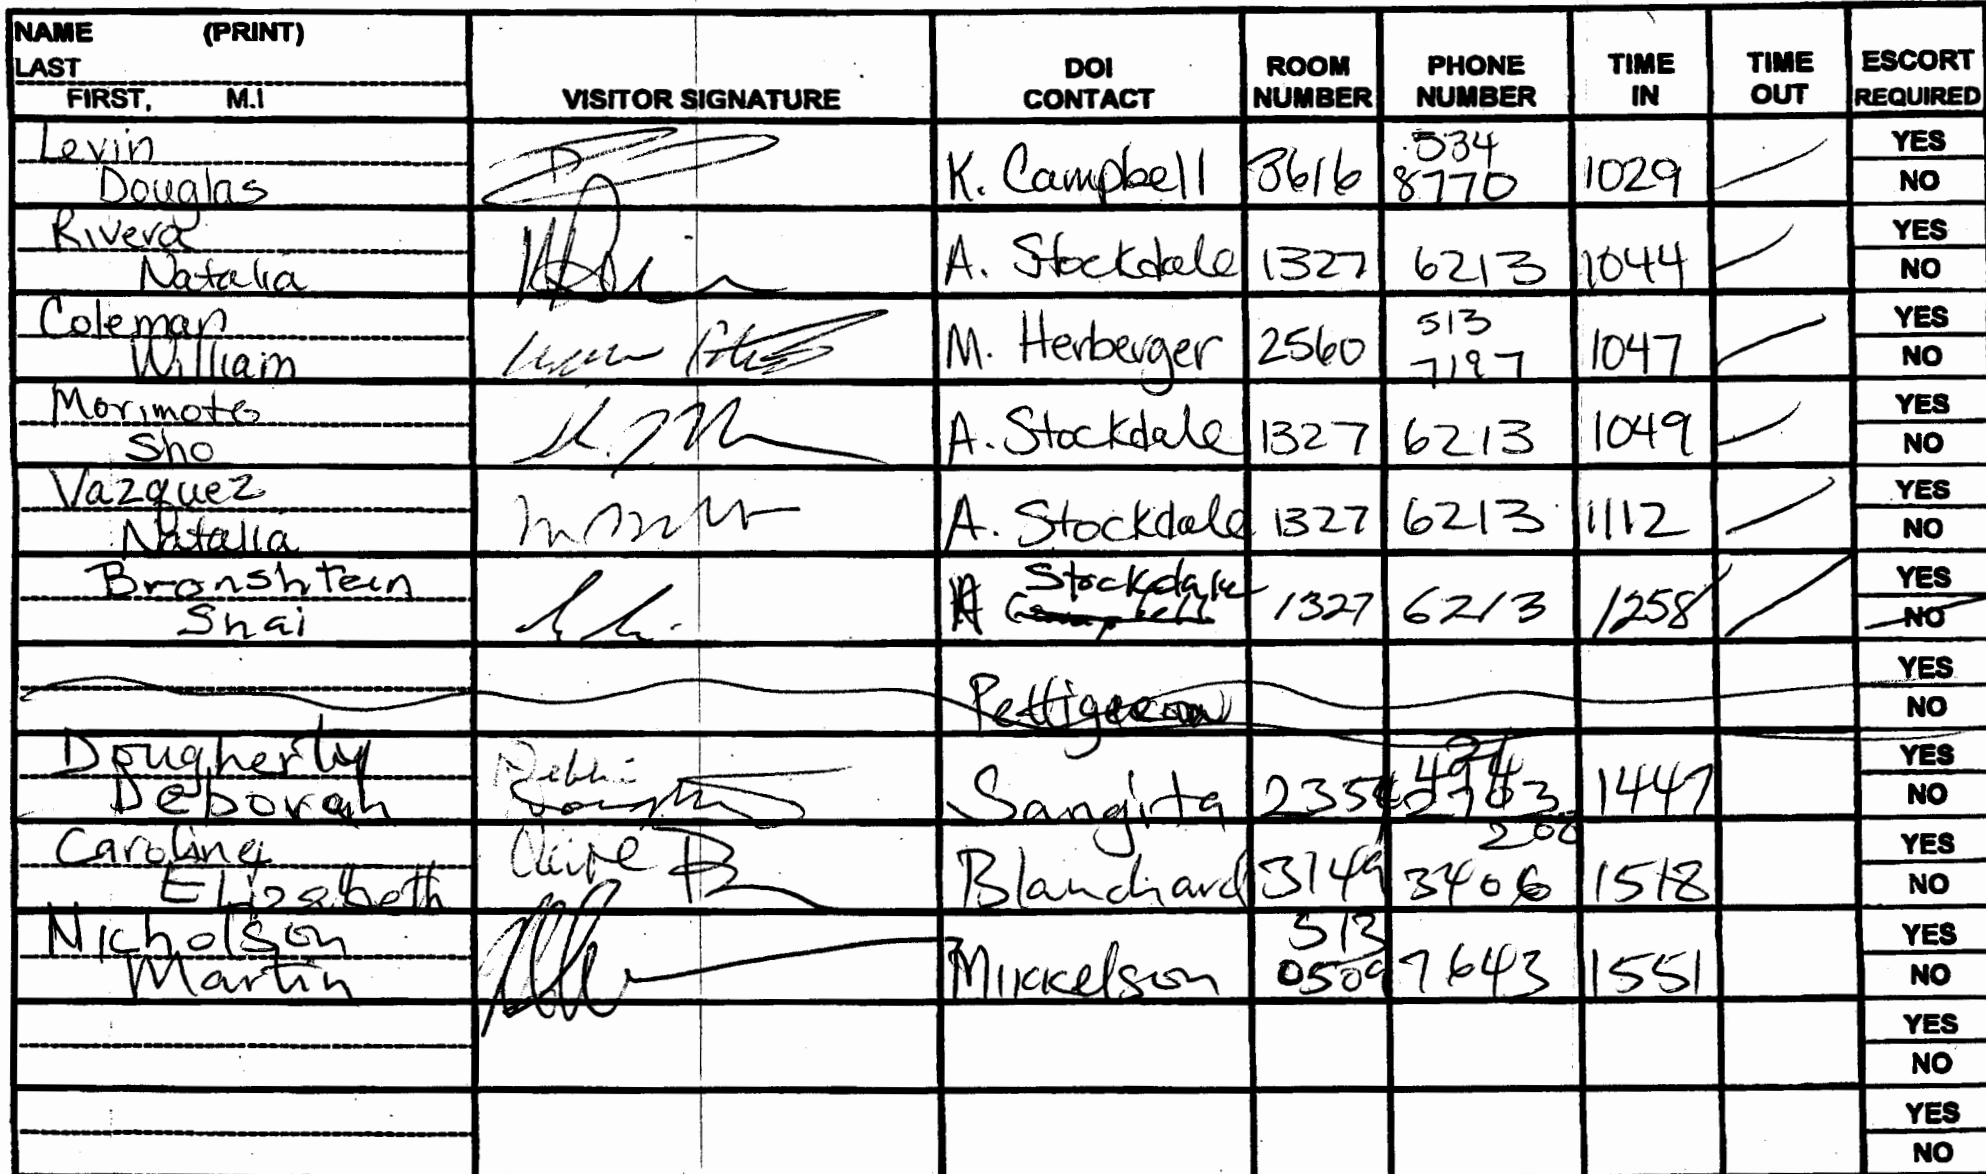 NAME (PRINT)
LAST
FIRST, M.I
VISITOR SIGNATURE
DOI CONTACT
ROOM NUMBER
PHONE NUMBER
TIME IN
TIME OUT
ESCORT REQUIRED
Levin
Douglas
K. Campbell 3616 534 8770 1029 YES NO
Rivera
Natalia
A. Stockdale 1327 6213 1044 YES NO
Coleman
William
M. Herberger 2560 513 7197 1047 YES NO
Morimoto
Sho
A. Stockdale 1327 6213 1049 YES NO
Vazquez
Natalia
A. Stockdale 1327 6213 1112 YES NO
Bronshtein
Shai
A Stockdale Campbell 1327 6213 1258 YES NO
YES NO
Dougherty
Deborah
Debbie
Sangita 1447 YES NO
Caroline
Elizabeth
Claire B
Blanchard 3149 208 3406 1518 YES NO
Nicholson
Martin
Mikkelson 513 0509 7643 1551 YES NO
YES NO
YES NO